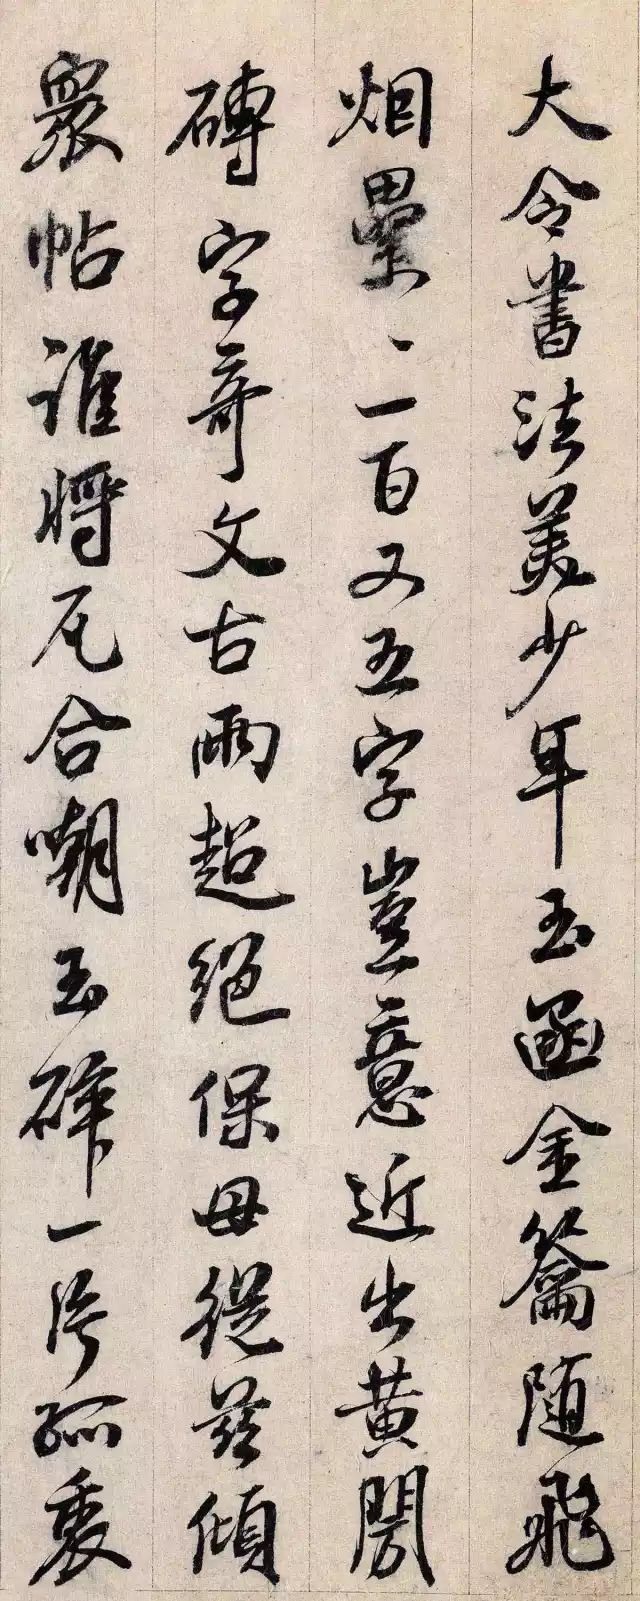 大令書法美少年玉函金籥随飛
烟纍〻一百又五字豈意近出黄閍
磚字奇文古兩超絕保母從茲傾
衆帖誰將瓦合嘲玉碎一片孤